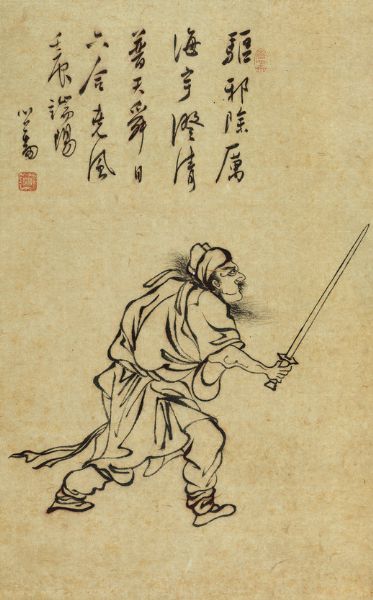 驅邪除厲
海宇澄清
普天舜日
六合堯風
壬辰端陽
心畬